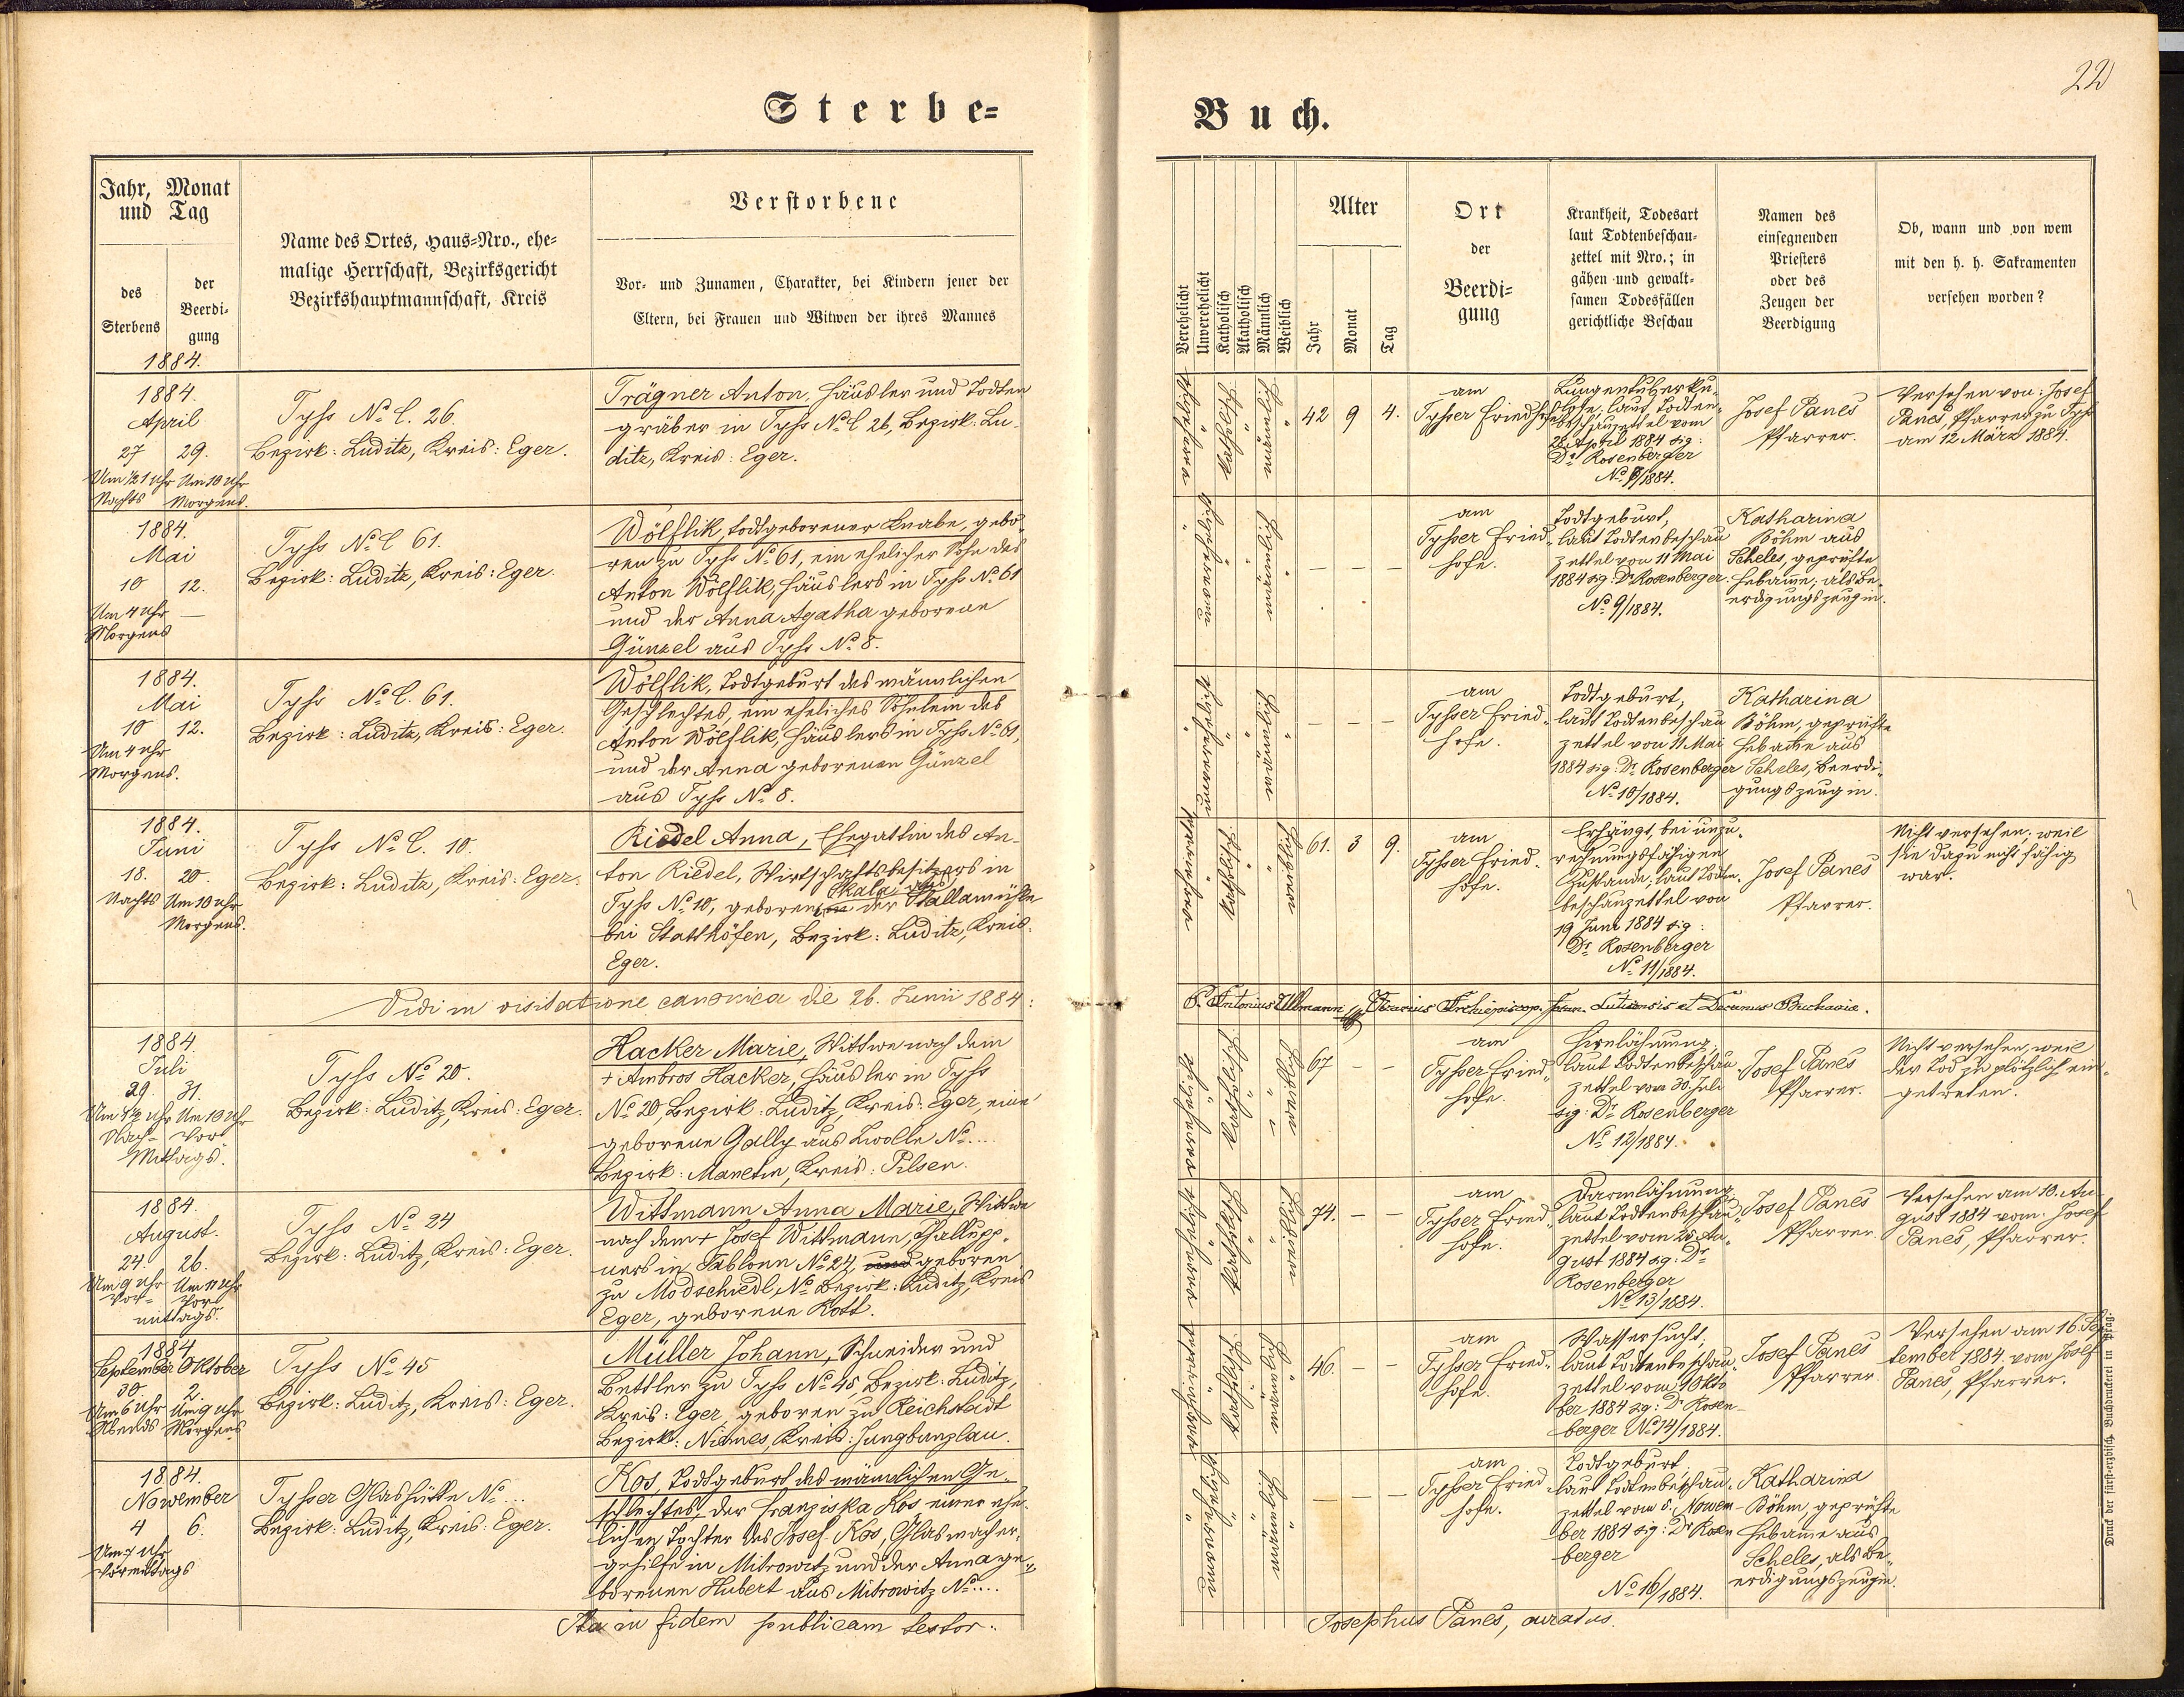 22
Sterbe-
Buch.
Jahr, Monat
und Tag
des
Sterbens
der
Beerdi-
gung
Name des Ortes, Haus-Nro., ehe-
malige Herrschaft, Bezirksgericht
Bezirkshauptmannschaft, Kreis
Verstorbene
Vor- und Zunamen, Charakter, bei Kindern jener der
Eltern, bei Frauen und Witwen der ihres Mannes
Verehelicht
Unverehelicht
Katholisch
Akatholisch
Männlich
Weiblich
Alter
Jahr
Monat
Tag
Ort
der
Beerdi-
gung
Krankheit, Todesart
laut Todtenbeschau-
zettel mit Nro.; in
gähen und gewalt-
samen Todesfällen
gerichtliche Beschau
Namen des
einsegnenden
Priesters
oder des
Zeugen der
Beerdigung
Ob, wann und von wem
mit den h. h. Sakramenten
versehen worden?
1884.
1884.
April
27 29.
Um ½1 Uhr Um 10 Uhr
Nachts Morgens.
Tyss No C. 26.
Bezirk: Luditz, Kreis: Eger.
Trägner Anton, Häusler und Todten
gräber in Tyss No C 26, Bezirk: Lu-
ditz, Kreis: Eger.
42 9 4.
am
Tysser Friedhofe
Lungentuberku-
lose, laut Todten-
beschauzettel vom
28 April 1884 sig:
Dr Rosenberger
No 8/1884.
Josef Panes
Pfarrer.
Versehen von: Josef
Panes, Pfarrer zu Tyss
am 12 März 1884.
1884.
Mai
10 12.
Um 4 Uhr —
Morgens
Tyss No C 61.
Bezirk: Luditz, Kreis: Eger.
Wölflik, todtgeborener Knabe, gebo-
ren zu Tyss No 61, ein ehelicher Sohn des
Anton Wölflik, Häuslers in Tyss No 61
und der Anna Agatha geborene
Günzel aus Tyss No 8.
— — —
am
Tysser Fried-
hofe.
Todtgeburt,
laut Todtenbeschau
zettel von 11 Mai
1884 sig: Dr Rosenberger.
No 9/1884.
Katharina
Böhm aus
Scheles, geprüfte
Hebame; als Be-
erdigungszeugin.
1884.
Mai
10 12.
Um 4 Uhr
Morgens.
Tyss No C. 61.
Bezirk: Luditz, Kreis: Eger.
Wölflik, Todtgeburt des männlichen
Geschlechtes, ein eheliches Söhnlein des
Anton Wölflik, Häuslers in Tyss No 61,
und der Anna geborenen Günzel
aus Tyss No 8.
— — —
am
Tysser Fried-
hofe.
Todtgeburt,
laut Todtenbeschau
zettel von 11 Mai
1884 sig: Dr Rosenberger
No 10/1884.
Katharina
Böhm, geprüfte
Hebame aus
Scheles, Beerdi-
gungszeugin.
1884.
Juni
18. 20.
Nachts Um 10 Uhr
Morgens.
Tyss No C. 10.
Bezirk: Luditz, Kreis: Eger.
Riedel Anna, Ehegattin des An-
ton Riedel, Wirtschaftsbesitzers in
Tyss No 10, geboren der Skallamühle
bei Statthöfen, Bezirk: Luditz, Kreis:
Eger.
61. 3 9.
am
Tysser Fried-
hofe.
Erhängt, bei unzu-
rechnungsfähigen
Zustande; laut Todten-
beschauzettel von
19 Juni 1884 sig:
Dr Rosenberger
No 11/1884.
Josef Panes
Pfarrer.
Nicht versehen, weil
sie dazu nicht fähig
war.
Vidi in visitatione canonica die 26. Junii 1884:
P. Antonius Ullmann Vicarius Archiepiscop. foran. Luticensis et Decanus Buchoviae.
1884.
Juli
29. 31.
Um Uhr Um 10 Uhr
Nach- Vor-
Mittags.
Tyss No 20.
Bezirk: Luditz, Kreis: Eger.
Hacker Marie, Wittwe nach dem
+ Ambros Hacker, Häusler in Tyss
No 20, Bezirk: Luditz, Kreis: Eger, eine
geborene Gally aus Zwolln No ....
Bezirk: Manetin, Kreis: Pilsen.
67 — —
am
Tysser Fried-
hofe.
Hirnlähmung,
laut Todtenbeschau
zettel vom 30. Juli
sig: Dr Rosenberger
No 12/1884.
Josef Panes
Pfarrer.
Nicht versehen, weil
der Tod zu plötzlich ein-
getreten.
1884.
August.
24. 26.
Um 9 Uhr Um 11 Uhr
Vor- Vor
mittags.
Tyss No 24
Bezirk: Luditz, Kreis: Eger.
Wittmann Anna Marie, Wittwe
nach dem + Josef Wittmann, Challupp-
ners in Jablonn No 24, geboren
zu Modschiedl, No Bezirk: Luditz, Kreis
Eger, geborene Kott.
74. — —
am
Tysser Fried-
hofe.
Darmlähmung
laut Todtenbeschau-
zettel vom 25. Au-
gust 1884 sig: Dr
Rosenberger
No 13/1884.
Josef Panes
Pfarrer.
Versehen am 10. Au-
gust 1884 vom: Josef
Panes, Pfarrer.
1884.
September Oktober
30. 2.
Um 6 Uhr Um 9 Uhr
Abends Morgens
Tyss No 45
Bezirk: Luditz, Kreis: Eger.
Müller Johann, Schneider und
Bettler zu Tyss No 45, Bezirk: Luditz,
Kreis: Eger, geboren zu Reichstadt
Bezirk: Niemes, Kreis: Jungbunzlau.
46. — —
am
Tysser Fried-
hofe.
Wassersucht,
laut Todtenbeschau-
zettel vom: 1 Okto
ber 1884 sig: Dr Rosen-
berger No 14/1884.
Josef Panes
Pfarrer
Versehen am 16. Sep
tember 1884. vom Josef
Panes, Pfarrer.
1884.
November
4 6.
Um 7 Uhr
Vormittags
Tysser Glashütte No ...
Bezirk: Luditz, Kreis: Eger.
Kos, Todtgeburt des männlichen Ge-
schlechtes, der Franziska Kos einer ehe-
lichen Tochter des Josef Kos, Glasmacher-
gehilfe in Mitrowitz und der Anna ge-
borenen Hubert aus Mitrowitz No ....
— — —
am
Tysser Fried-
hofe.
Todtgeburt
laut Todtenbeschau-
zettel vom 5. Novem-
ber 1884 sig: Dr Rosen
berger
No 16/1884.
Katharina
Böhm, geprüfte
Hebame aus
Scheles, als Be-
erdigungszeugin.
Ita in fidem publicam testor:
Josephus Panes, curatus.
Druck der fürst-erzbisch. Buchdruckerei in Prag.